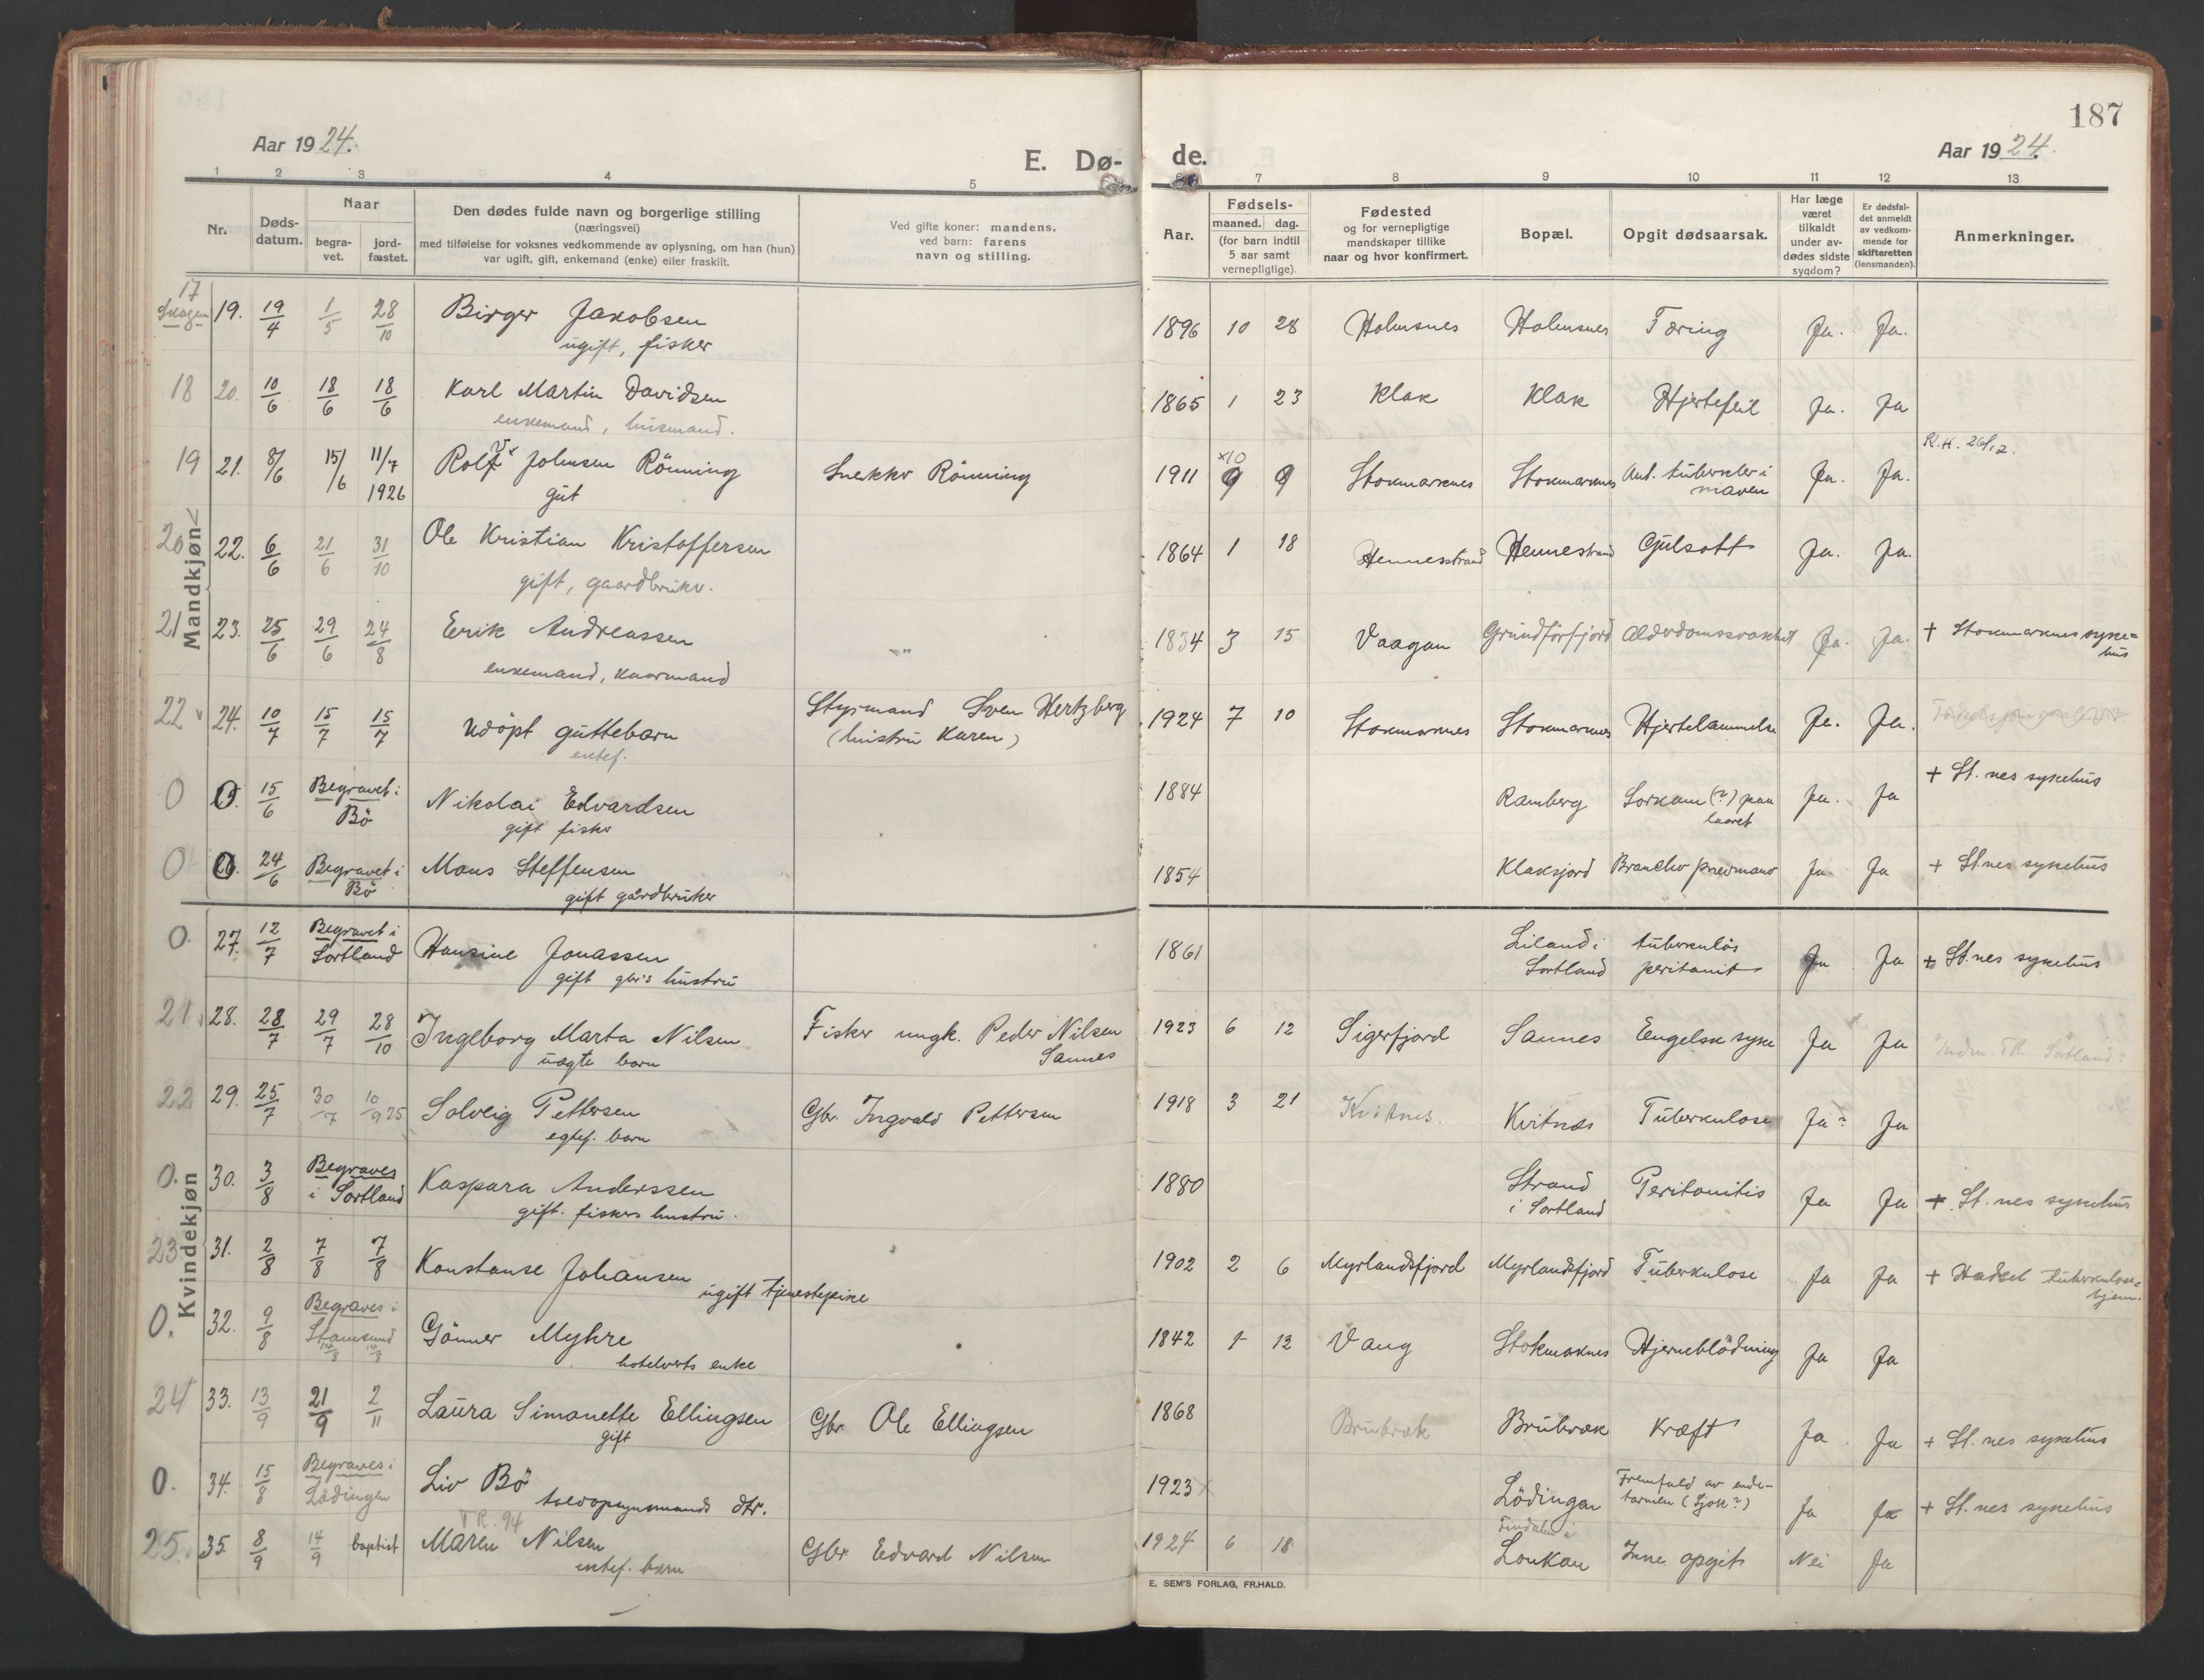 187
Aar 1924.
E. Dø-
de.
Aar 1924.
1 2 3 4 5 6 7 8 9 10 11 12 13
Nr.
Døds-
datum.
Naar
begra-
vet.
jord-
fæstet.
Den dødes fulde navn og borgerlige stilling
(næringsvei)
med tilføielse for voksnes vedkommende av oplysning, om han (hun)
var ugift, gift, enkemand (enke) eller fraskilt.
Ved gifte koner: mandens,
ved barn: farens
navn og stilling.
Aar.
Fødsels-
maaned. dag.
(for barn indtil
5 aar samt
vernepligtige).
Fødested
og for vernepligtige
mandskaper tillike
naar og hvor konfirmert.
Bopæl.
Opgit dødsaarsak.
Har læge
været
tilkaldt
under av-
dødes sidste
sygdom?
Er dødsfal-
det anmeldt
av vedkom-
mende for
skifteretten
(lensmanden).
Anmerkninger.
Mandkjøn
17
Skogen 19. 19/4 1/5 28/10 Birger Jakobsen 1896 10 28 Holmsnes Holmsnes Tæring Ja. Ja.
ugift, fisker
18 20. 10/6 18/6 18/6 Karl Martin Davidsen 1865 1 23 Klak Klak Hjertefeil Ja. Ja
enkemand, husmand.
R.H. 26/12.
19 21. 8/6 15/6 11/7 1926 Rolf Johnsen Rönning Snekker Rönning 1911 x10 9 9 Stokmarknes Stokmarknes Ant. tuberkler i Ja. Ja.
gut maven
20 22. 6/6 21/6 31/10 Ole Kristian Kristoffersen 1864 1 18 Hennesstrand Hennestrand Gulsott Ja. Ja.
gift, gaardbruker.
21 23. 25/6 29/6 24/8 Erik Andreassen 1834 3 15 Vaagan Grundförfjord Alderdomssvakhet Ja. Ja. + Stokmarknes syke=
enkemand, kaarmand hus
22 24. 10/7 15/7 15/7 Udöpt guttebarn Styrmand Sven Hertzberg 1924 7 10 Stokmarknes Stokmarknes Hjertelammelse Ja. Ja.
ektef. (hustru Karen)
0 25. 15/6 Begravet i Bö Nikolai Edvardsen 1884 Ramberg Sorkam (?) paa Ja. Ja + St. nes sykehus
gift fisker laaret
0 26. 24/6 Begravet i Bö Mons Steffensen 1854 Klaksjord Brancho pneomano Ja. Ja + St.nes sykehus
gift gårdbruker
Kvindekjøn
0. 27. 12/7 Begravet i Sortland Hansine Jonassen 1861 Liland i Sortland tuberkuløs peritonit Ja Ja + St.nes sykehus
gift gbr's hustru
21 28. 28/7 29/7 28/10 Ingeborg Marta Nilsen Fisker ungk. Peder Nilsen Sannes 1923 6 12 Sigerfjord Sannes Engelsk syke Ja Ja
uægte barn
22 29. 25/7 30/7 10/9 25 Solveig Pettersen Gbr. Ingvald Pettersen 1918 3 21 Kvitnes. Kvitnes Tuberkulose Ja? Ja
egtef. barn
0. 30. 3/8 Begraves i Sortland Kaspara Anderssen 1880 Strand i Sortland Peritonitis Ja Ja + St. nes sykehus
gift. fiskers hustru.
23 31. 2/8 7/8 7/8 Konstanse Johansen 1902 2 6 Myrlandsfjord Myrlandsfjord Tuberkulose Ja Ja + Hadsel tuberkulose=
ugift tjenestepike hjem.
0. 32. 9/8 Begraves i Stamsund 14/8 14/8 Gönner Myhre 1842 1 13 Vang Stokmaknes Hjerneblödning Ja Ja
hotelverts enke
24 33. 13/9 21/9 2/11 Laura Simonette Ellingsen Gbr. Ole Ellingsen 1868 Brubræk Brubræk Kræft Ja Ja + St. nes sykehus
gift
0. 34. 15/8 Begraves i Lödingen Liv Bö 1923 Lödingen Fremfald av ende- Ja Ja + St. nes sykehus
dtr. tarmen (Sjok?)
TR. 94
25. 35. 8/9 14/9 baptist Maren Nilsen Gbr Edvard Nilsen 1924 6 18 Lonkan Ikke opgit Nei Ja
ektef. barn
E. SEM'S FORLAG, FR.HALD.